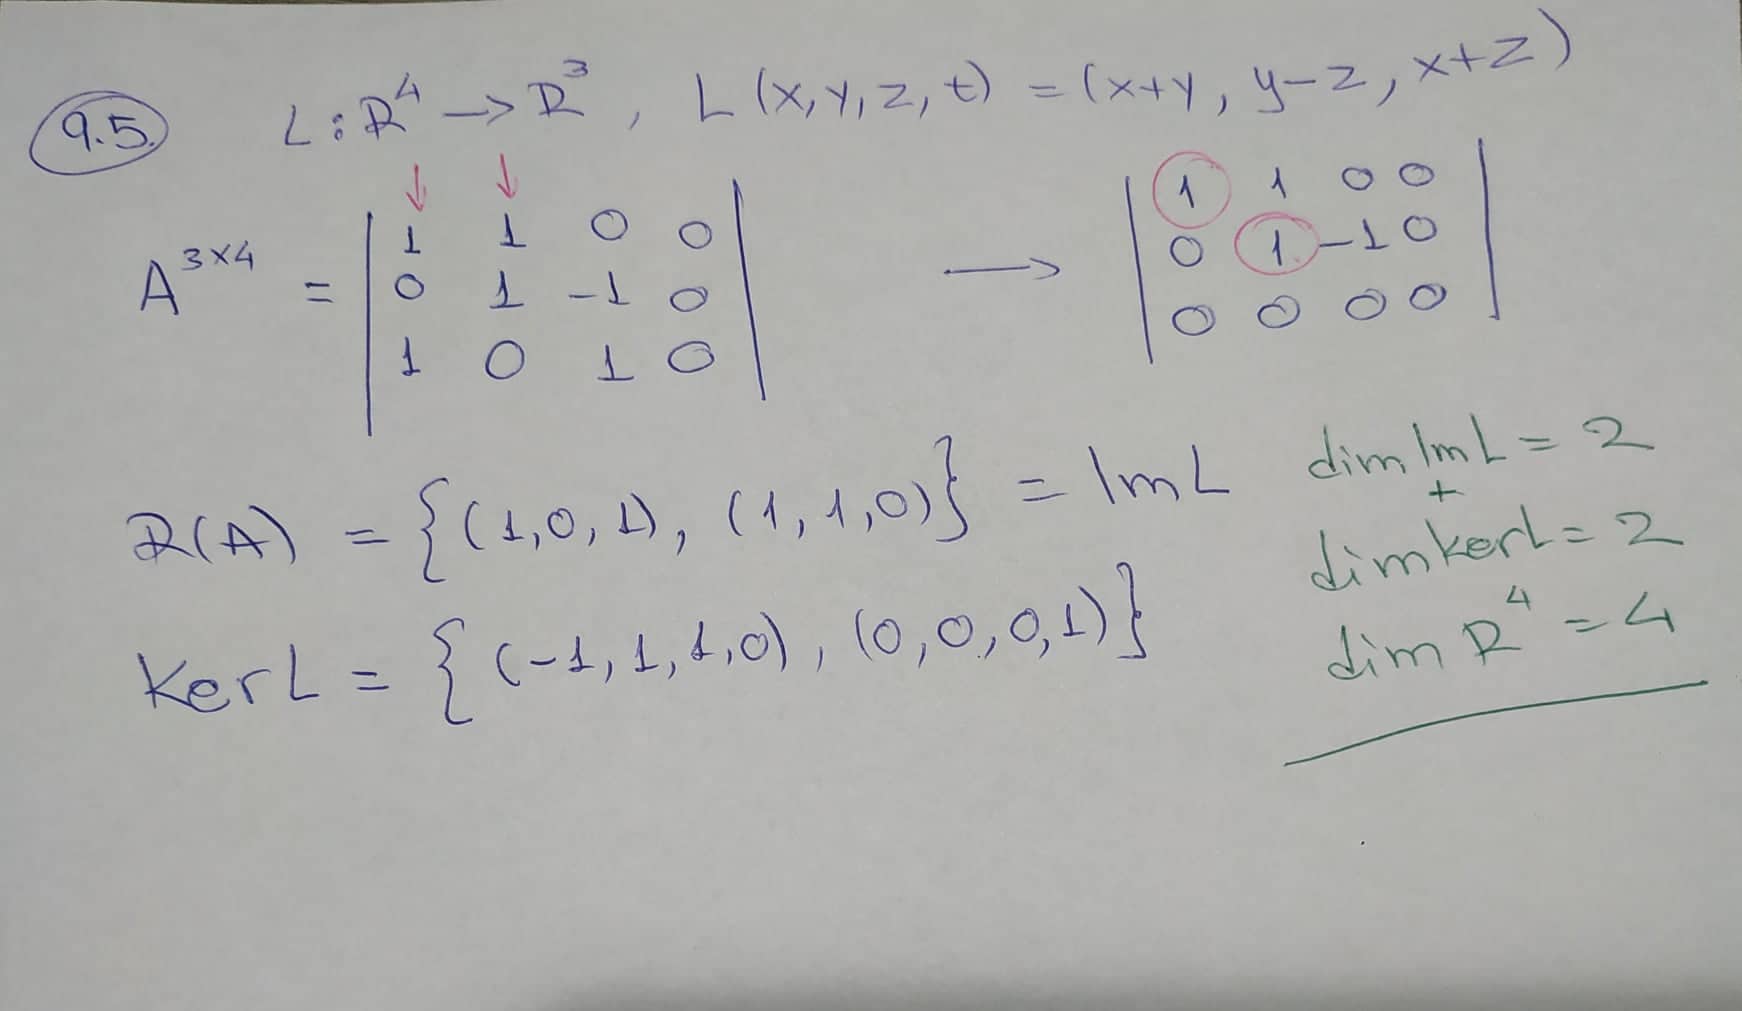 9.5. L:R⁴→R³, L(x,y,z,t) = (x+y, y-z, x+z)
A³ˣ⁴ = | 1 1 0 0 | → | 1 1 0 0 |
| 0 1 -1 0 | | 0 1 -1 0 |
| 1 0 1 0 | | 0 0 0 0 |
R(A) = {(1,0,1), (1,1,0)} = ImL
KerL = {(-1,1,1,0), (0,0,0,1)}
dim ImL = 2
+
dim kerL = 2
dim R⁴ = 4